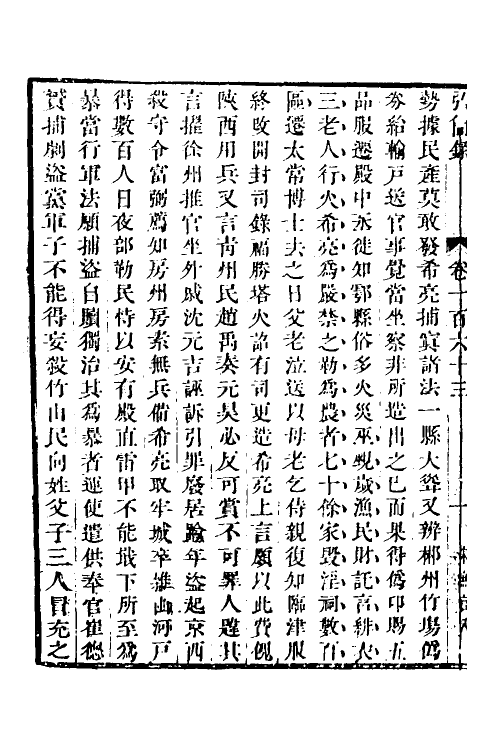 弘簡錄 卷一百六十三
勢據民產莫敢發希亮捕寘諸法一縣大聳又辨郴州竹場僞
劵給輸戶送官事覺當坐察非所造出之已而果得僞印賜五
品服遷殿中丞徙知鄠縣俗多火災巫覡歲漁民財託言緋衣
三老人行火希亮爲嚴禁之勒爲農者七十餘家毀淫祠數百
區遷太常博士去之日父老泣送以母老乞侍親復知臨津服
終改開封司錄福勝塔火諂有司更造希亮上言願以此費餽
陝西用兵又言靑州民趙禹奏元昊必反可賞不可罪人韙其
言擢徐州推官坐外戚沈元吉誣訴引罪廢居踰年盜起京西
殺守令富弼薦知房州房素無兵備希亮取牢城卒雜山河戶
得數百人日夜部勒民恃以安有殿直雷甲不能戢下所至爲
暴當行軍法願捕盜自贖獨治其爲暴者運使遣供奉官崔德
贇捕劇盜黨軍子不能得妄殺竹山民向姓父子三人冒充之